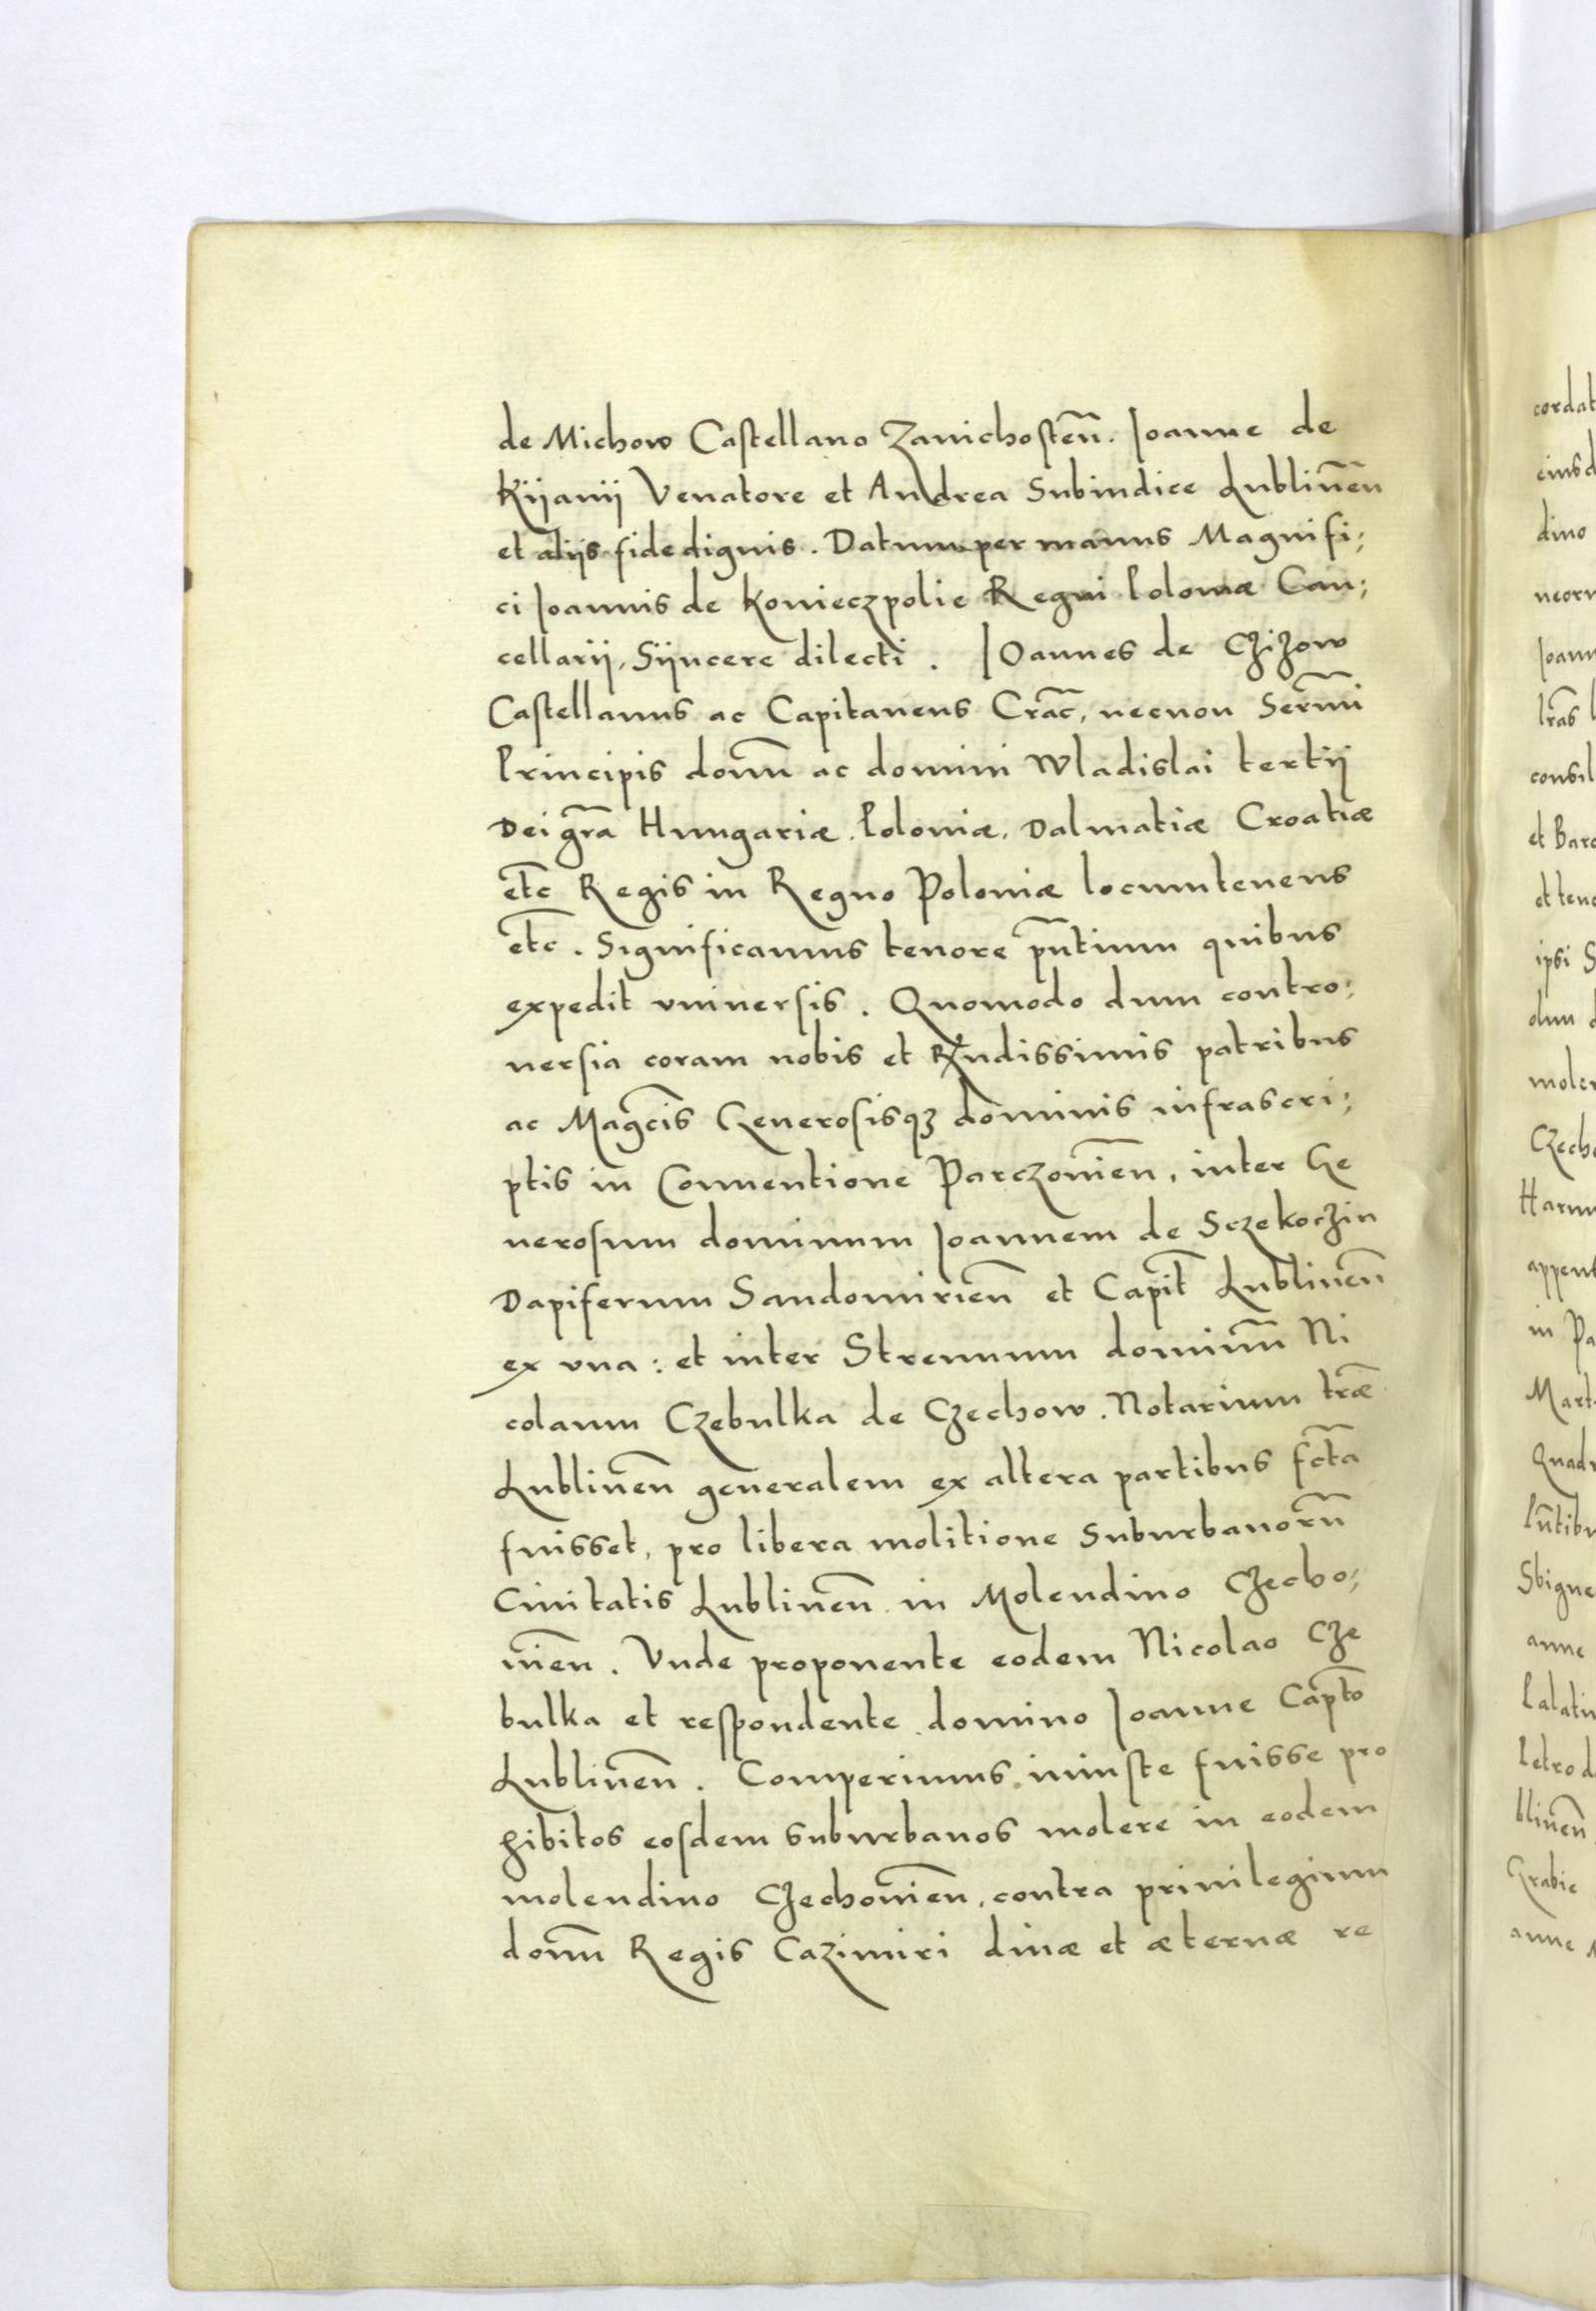 de Michow Castellano Zavichosteñ. Joanne de
Kijanij Venatore et Andrea Subiudice Lublineñ
et alijs fidedignis. Datum per manus Magnifi;
ci Joannis de Konieczpolie Regni Poloniæ Can;
cellarij, Sijncere dilecti. JOannes de Czizow
Castellanus ac Capitaneus Crac̃, necnon Serm̃i
Principis dom̃ ac domini Wladislai tertij
Dei gr̃a Hungariæ, Poloniæ, Dalmatiæ Croatiæ
et̃c Regis in Regno Poloniæ locumtenens
et̃c. Significamus tenore pñtium quibus
expedit vniuersis. Quomodo dum contro;
uersia coram nobis et Rẽudissimis patribus
ac Mag̃cis Generosisqꝫ dominis infrascri;
ptis in Conuentione Parczouieñ, inter Ge
nerosum dominum Joannem de Sczekoczin
Dapiferum Sandomirieñ et Capit̃ Lublineñ
ex vna: et inter Strenuum dominũ Ni
colaum Czebulka de Czechow. Notarium tr̃æ
Lublineñ generalem ex altera partibus fc̃ta
fuisset, pro libera molitione Suburbanorũ
Ciuitatis Lublineñ in Molendino Czecho;
uieñ. Vnde proponente eodem Nicolao Cze
bulka et respondente domino Joanne Capt̃o
Lublineñ. Comperimus iniuste fuisse pro
hibitos eosdem suburbanos molere in eodem
molendino Czechouieñ, contra priuilegium
dom̃ Regis Cazimiri diuæ et æternæ re
cordat
eiusd
dino
Joann
lr̃as
consil
et Baro
et tene
ipsi S
dum
Czecho
appens
in Pa
Mart
Quadr
Sbigne
anne
Palatin
Petro d
blineñ
Grabie
anne